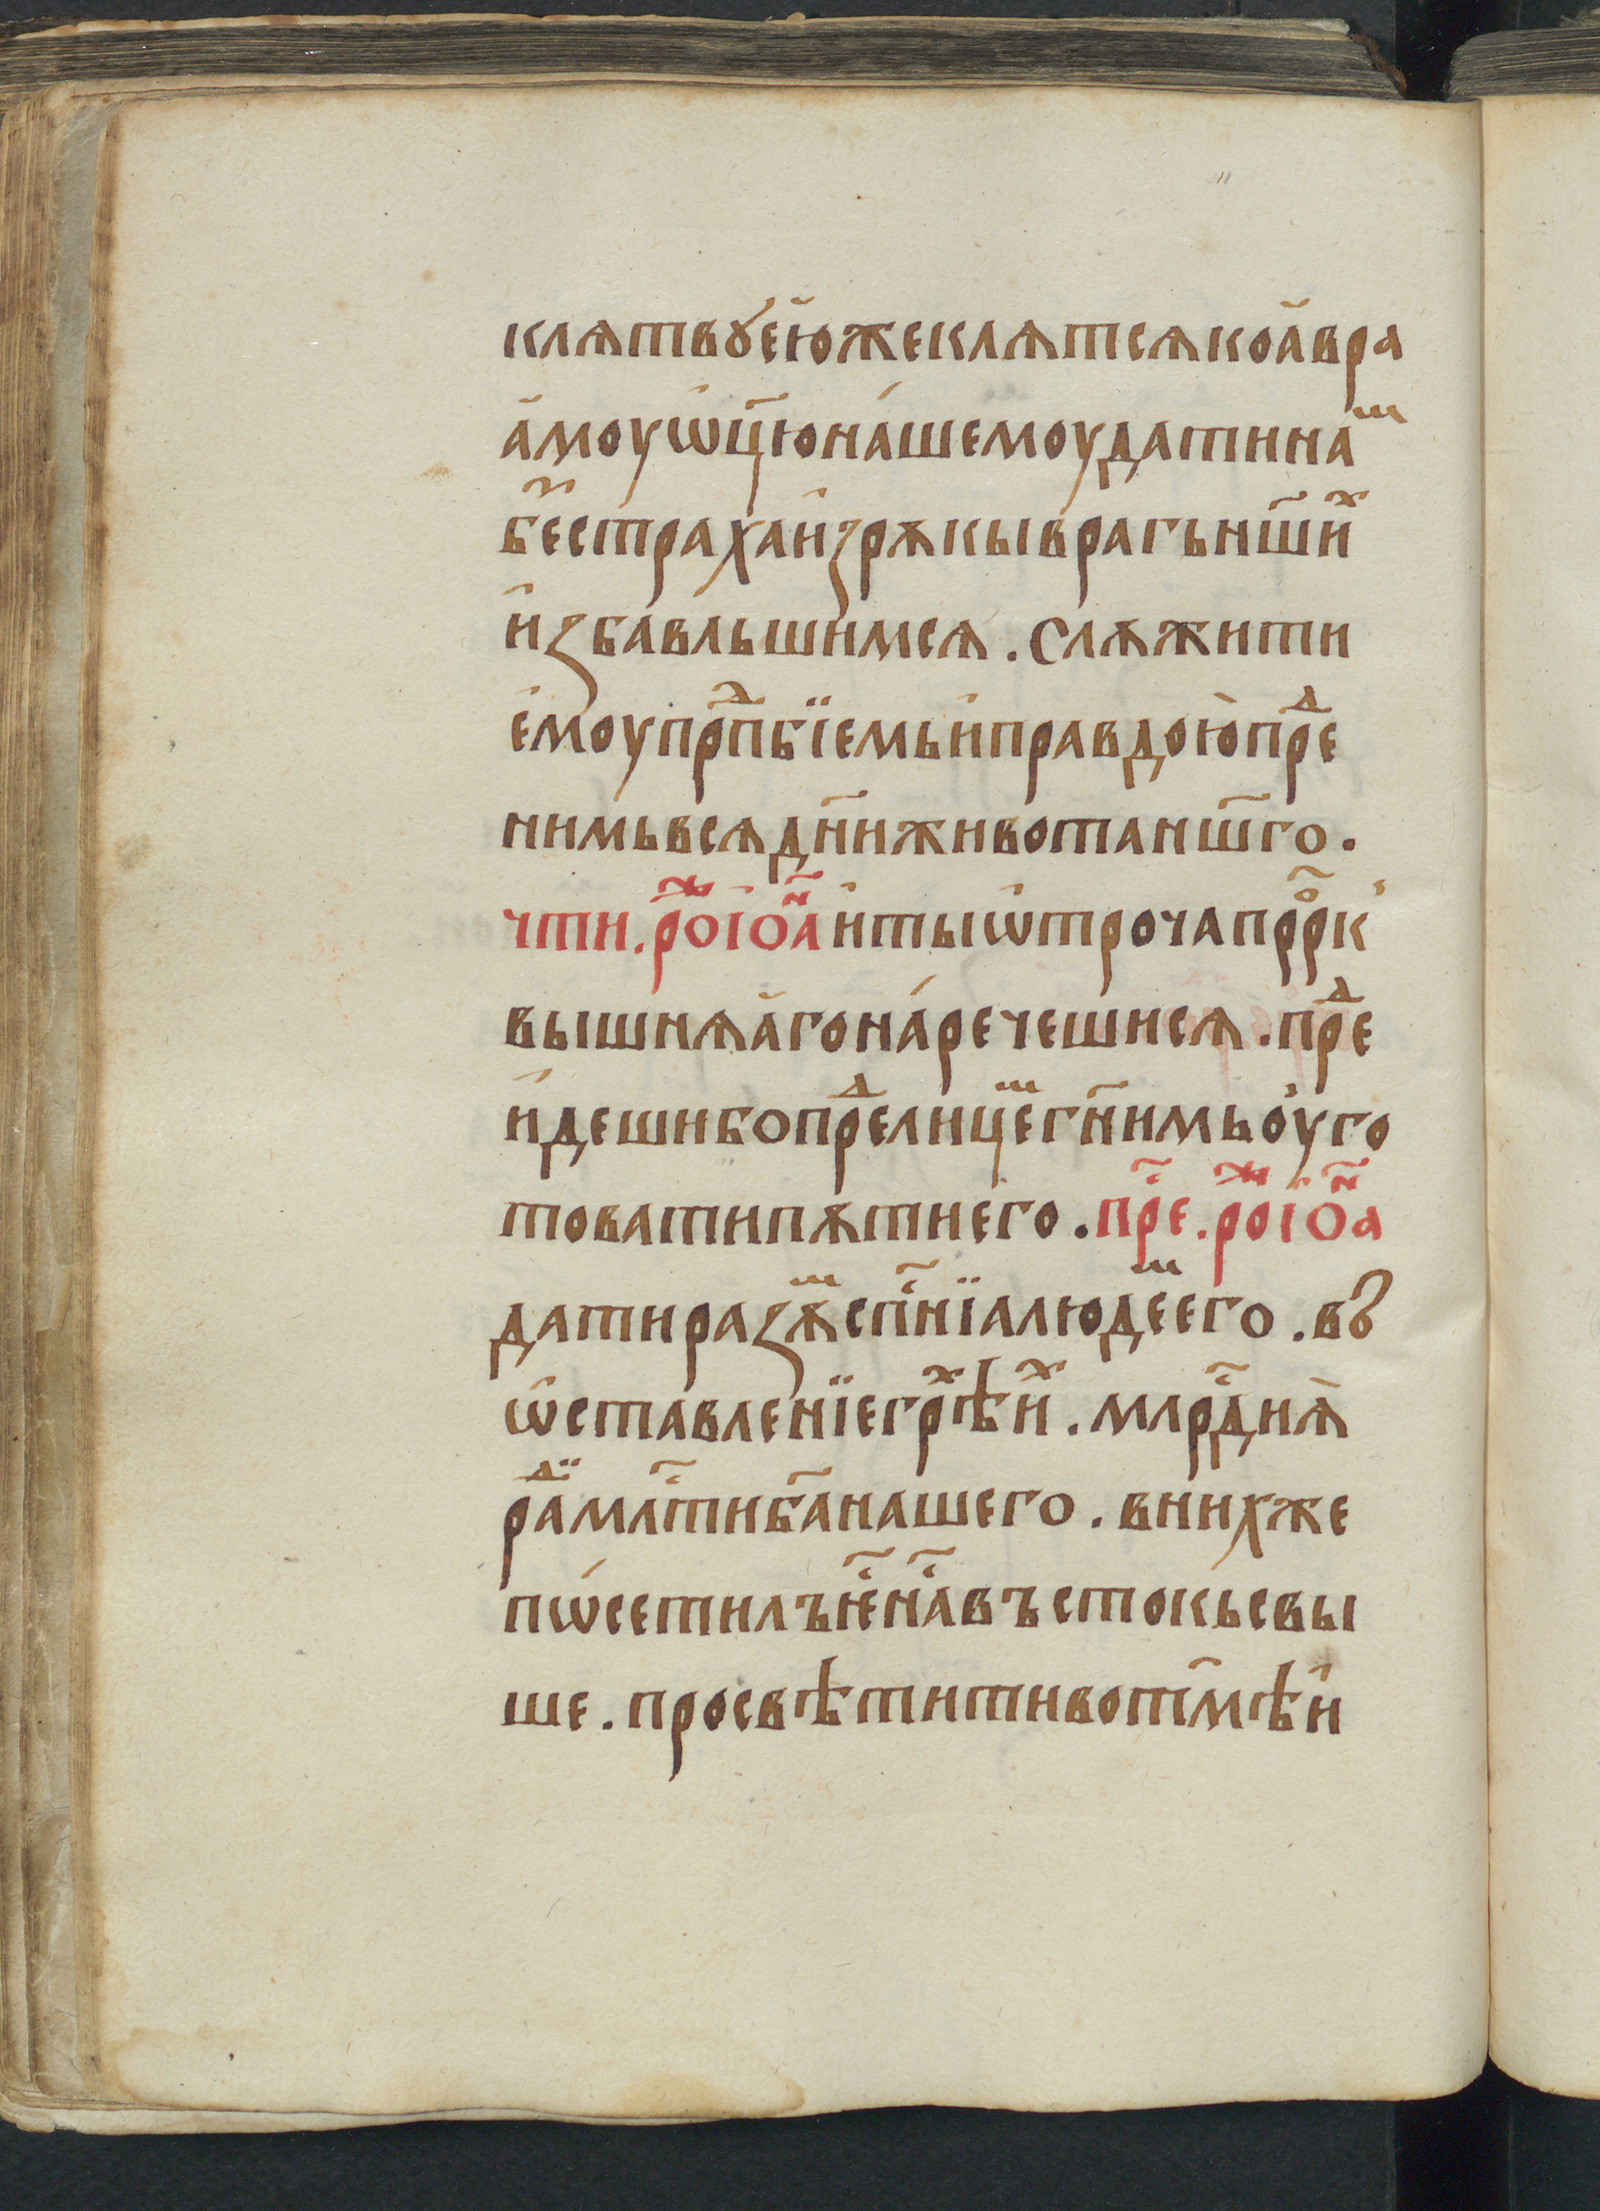 клѧтвꙋе҆южеклѧтсѧкоа҆вра
а҆моуѡ҆ц҃юна́шемоудатинаⷨ
бе҃страхаи҆зрѫкывра́гънш҃иⷯ
и҆зба́вльшимсѧ.слѫжити
е҆моупрⷣп҃бїемьи҆правдою̀прⷣе
ни́мьвсѧдн҃иживотанш҃го.
чти.рⷤоіѡⷩ҇аи҆тыѡ҆трочапрⷪ҇рк
вышнѧа҆гона́речешисѧ.прⷣе
и҆дешибопрⷣелицеⷨгн҃имьоу҆го
товатипѫтиего.прⷭ҇е.рⷤоіѡⷩ҇а
датиразѫⷨспⷭ҇нїалюдеⷨего.въ
ѡ҆ставленїегрѣⷯи҆ⷯ.млрⷭ҇днѧ̀
раⷣмлⷭ҇тиб҃анашего.внихже
пѡсетилън҃ен҃авъстокьсвы
ше.просвѣтитивотм҃ѣи҆